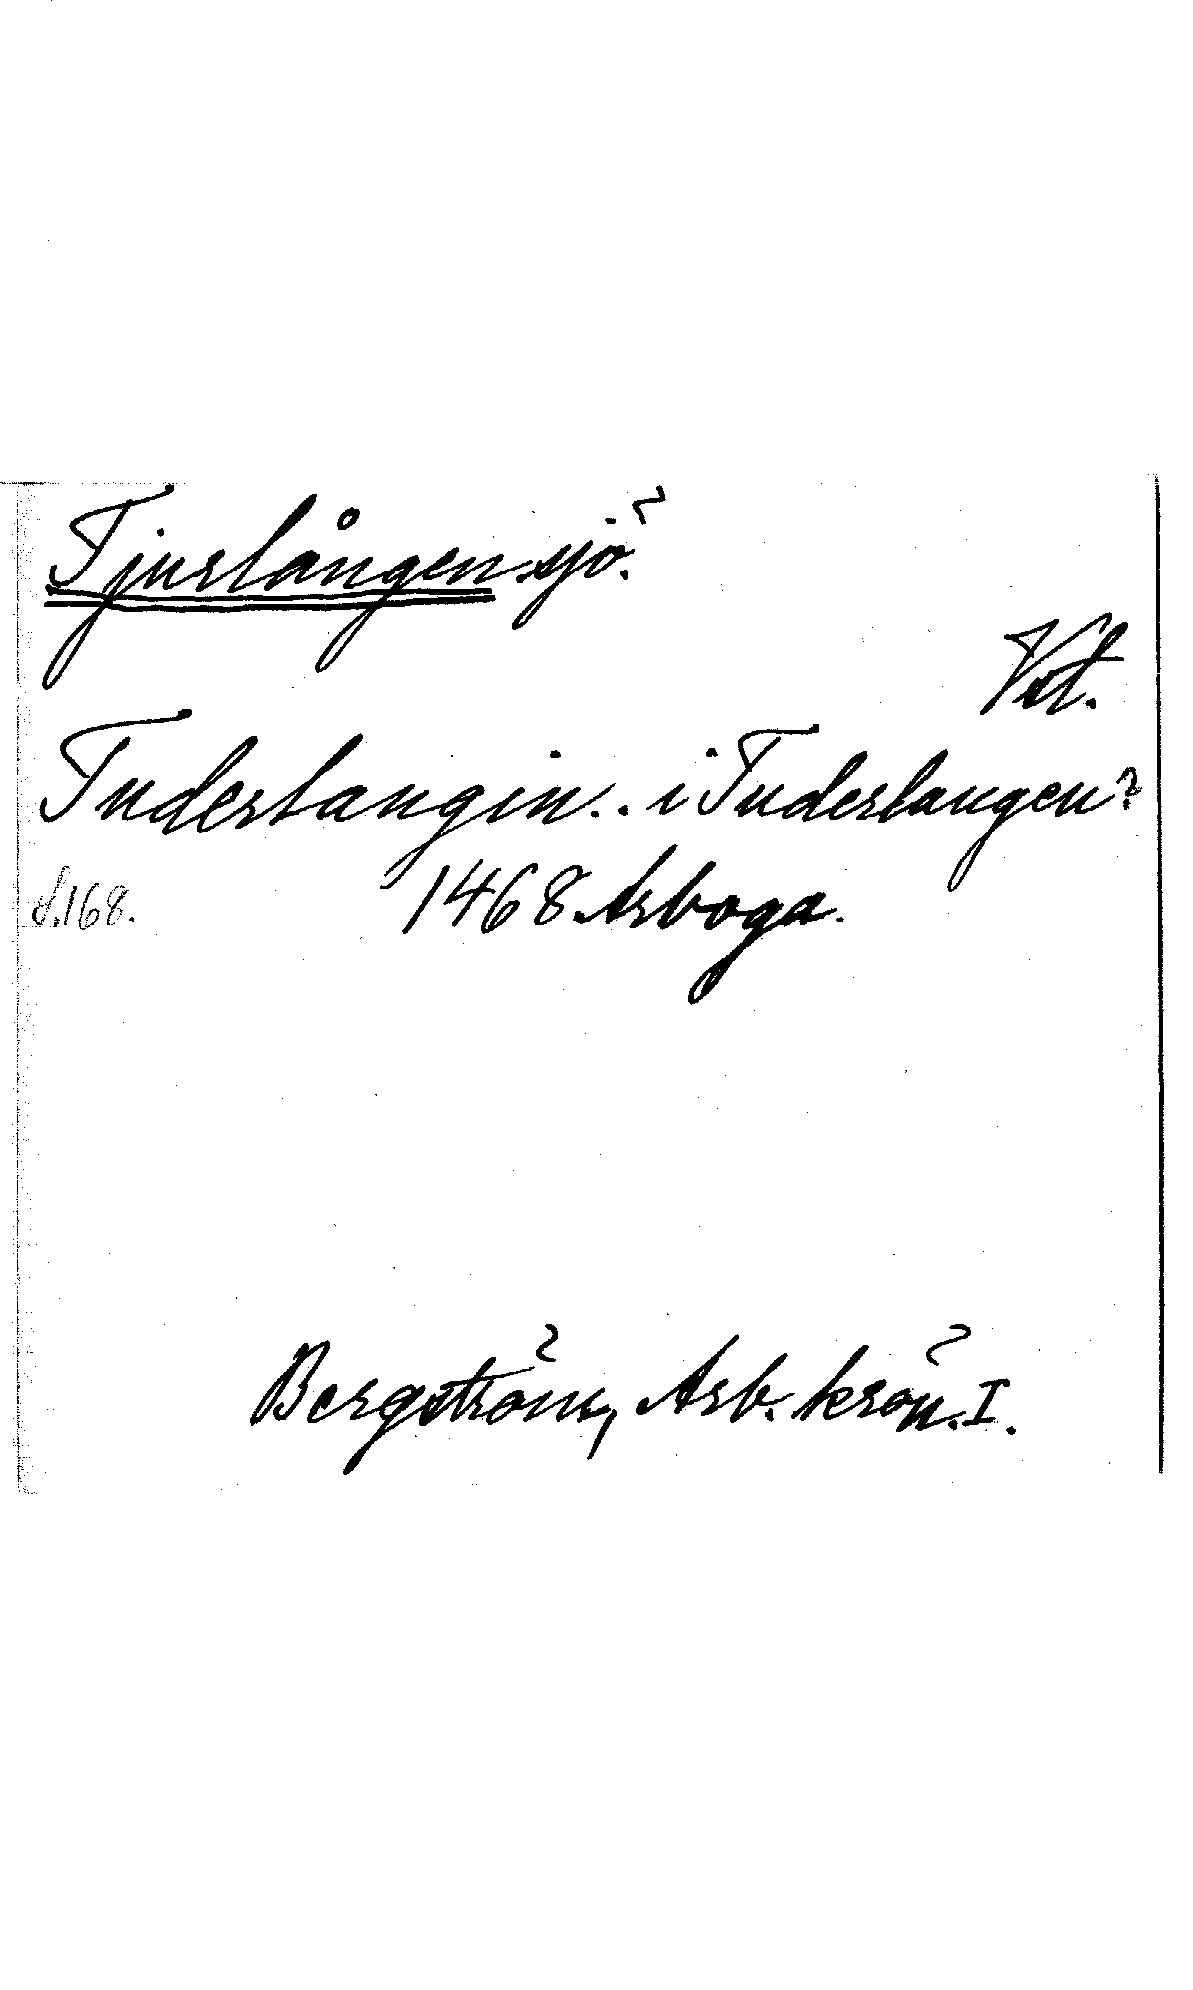 Tjurlången sjö.
Vst.
Tuderlangin.. i Tuderlangen?
s.168. 1468 Arboga.
Bergström, Arb. krön. I.